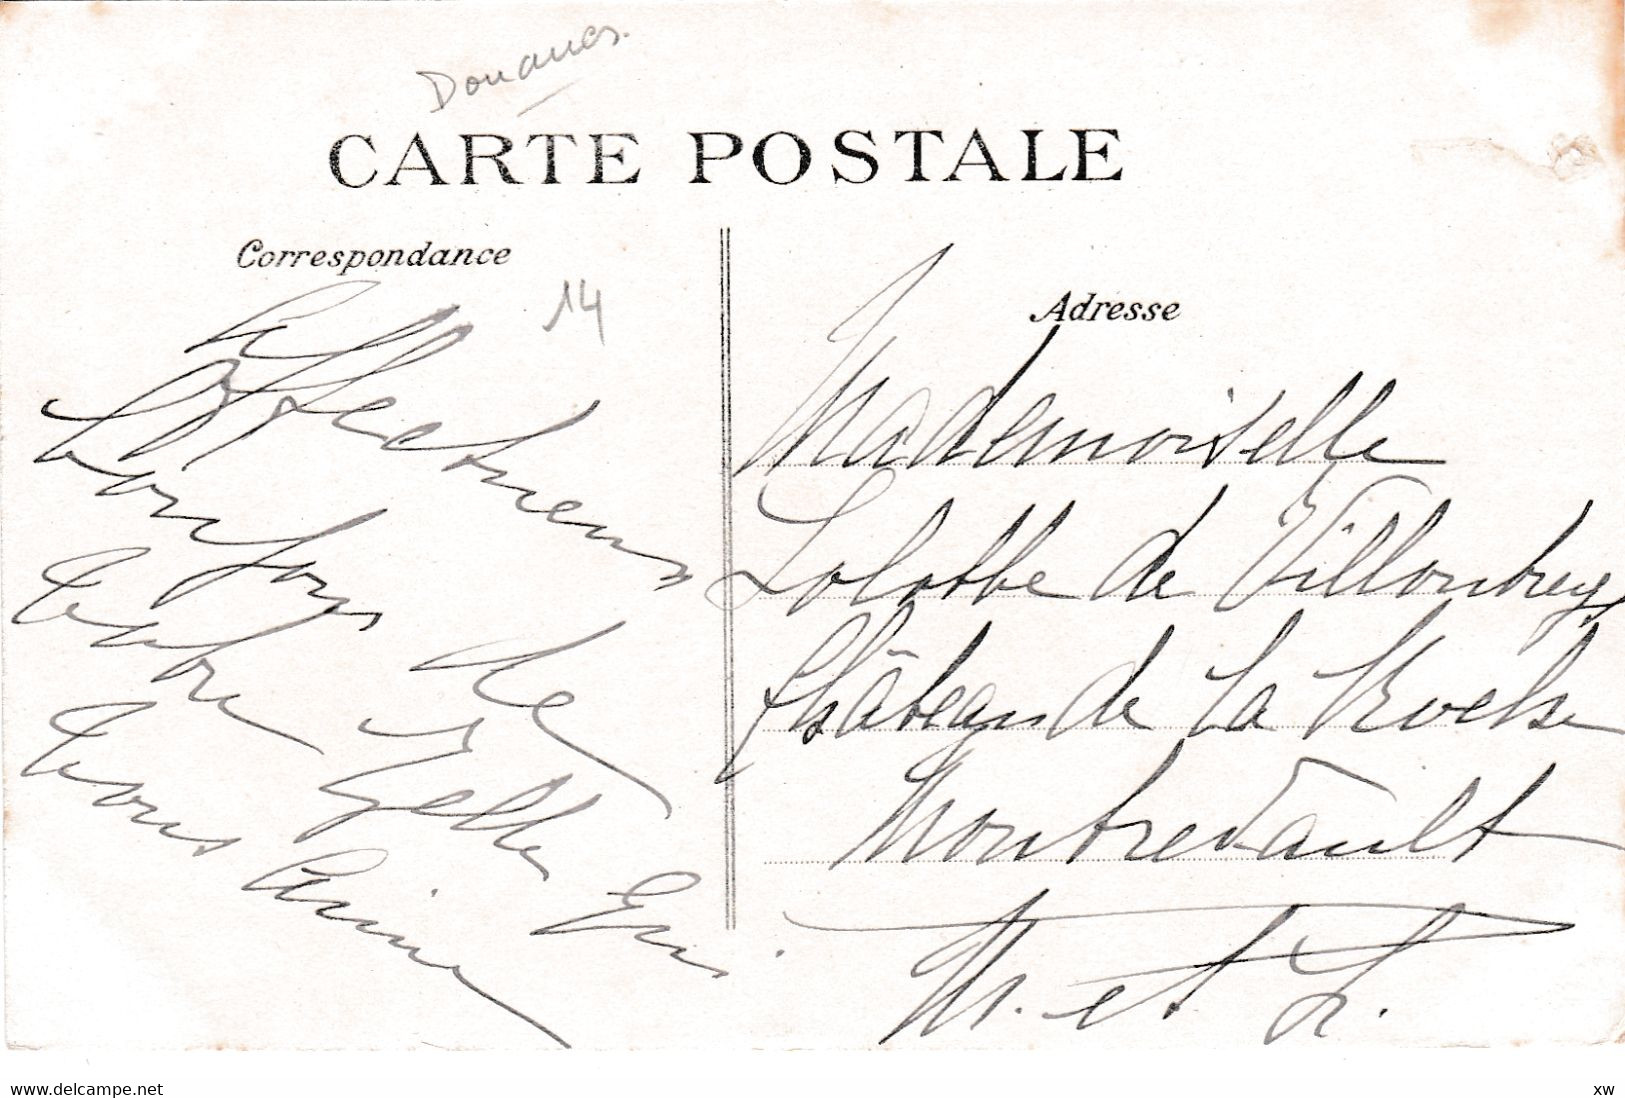 Douanes.
CARTE POSTALE
Correspondance
14
Affectueux
bonjour de
votre
vous aime
Adresse
Mademoiselle
Lolotte de Villoutreys
Château de la Roche
Montrevault
M. et L.
www.delcampe.net
xw